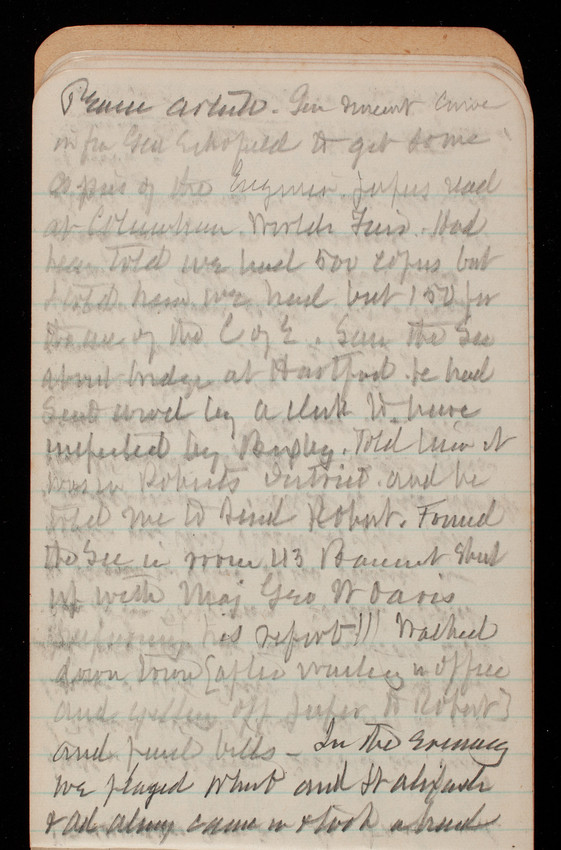 Gen Vincent came
in for Gen Schofield to get some
copies of the Engineer papers read
at Columbian Worlds Fair. Had
been told we had 500 copies but
I told him we had but 150 for
the use of the C of E. Saw the Sec
about bridge at Hartford he had
Send word by a clerk to have
inspected by Told him it
was in Roberts District and he
told me to send Robert. Found
the Sec in room 113 shut
up with Maj Geo W Davis
his report!!! Walked
down town [after working in office
and getting off paper to Robert]
and paid bills - In the evening
we played whist and
& came in & took a hand